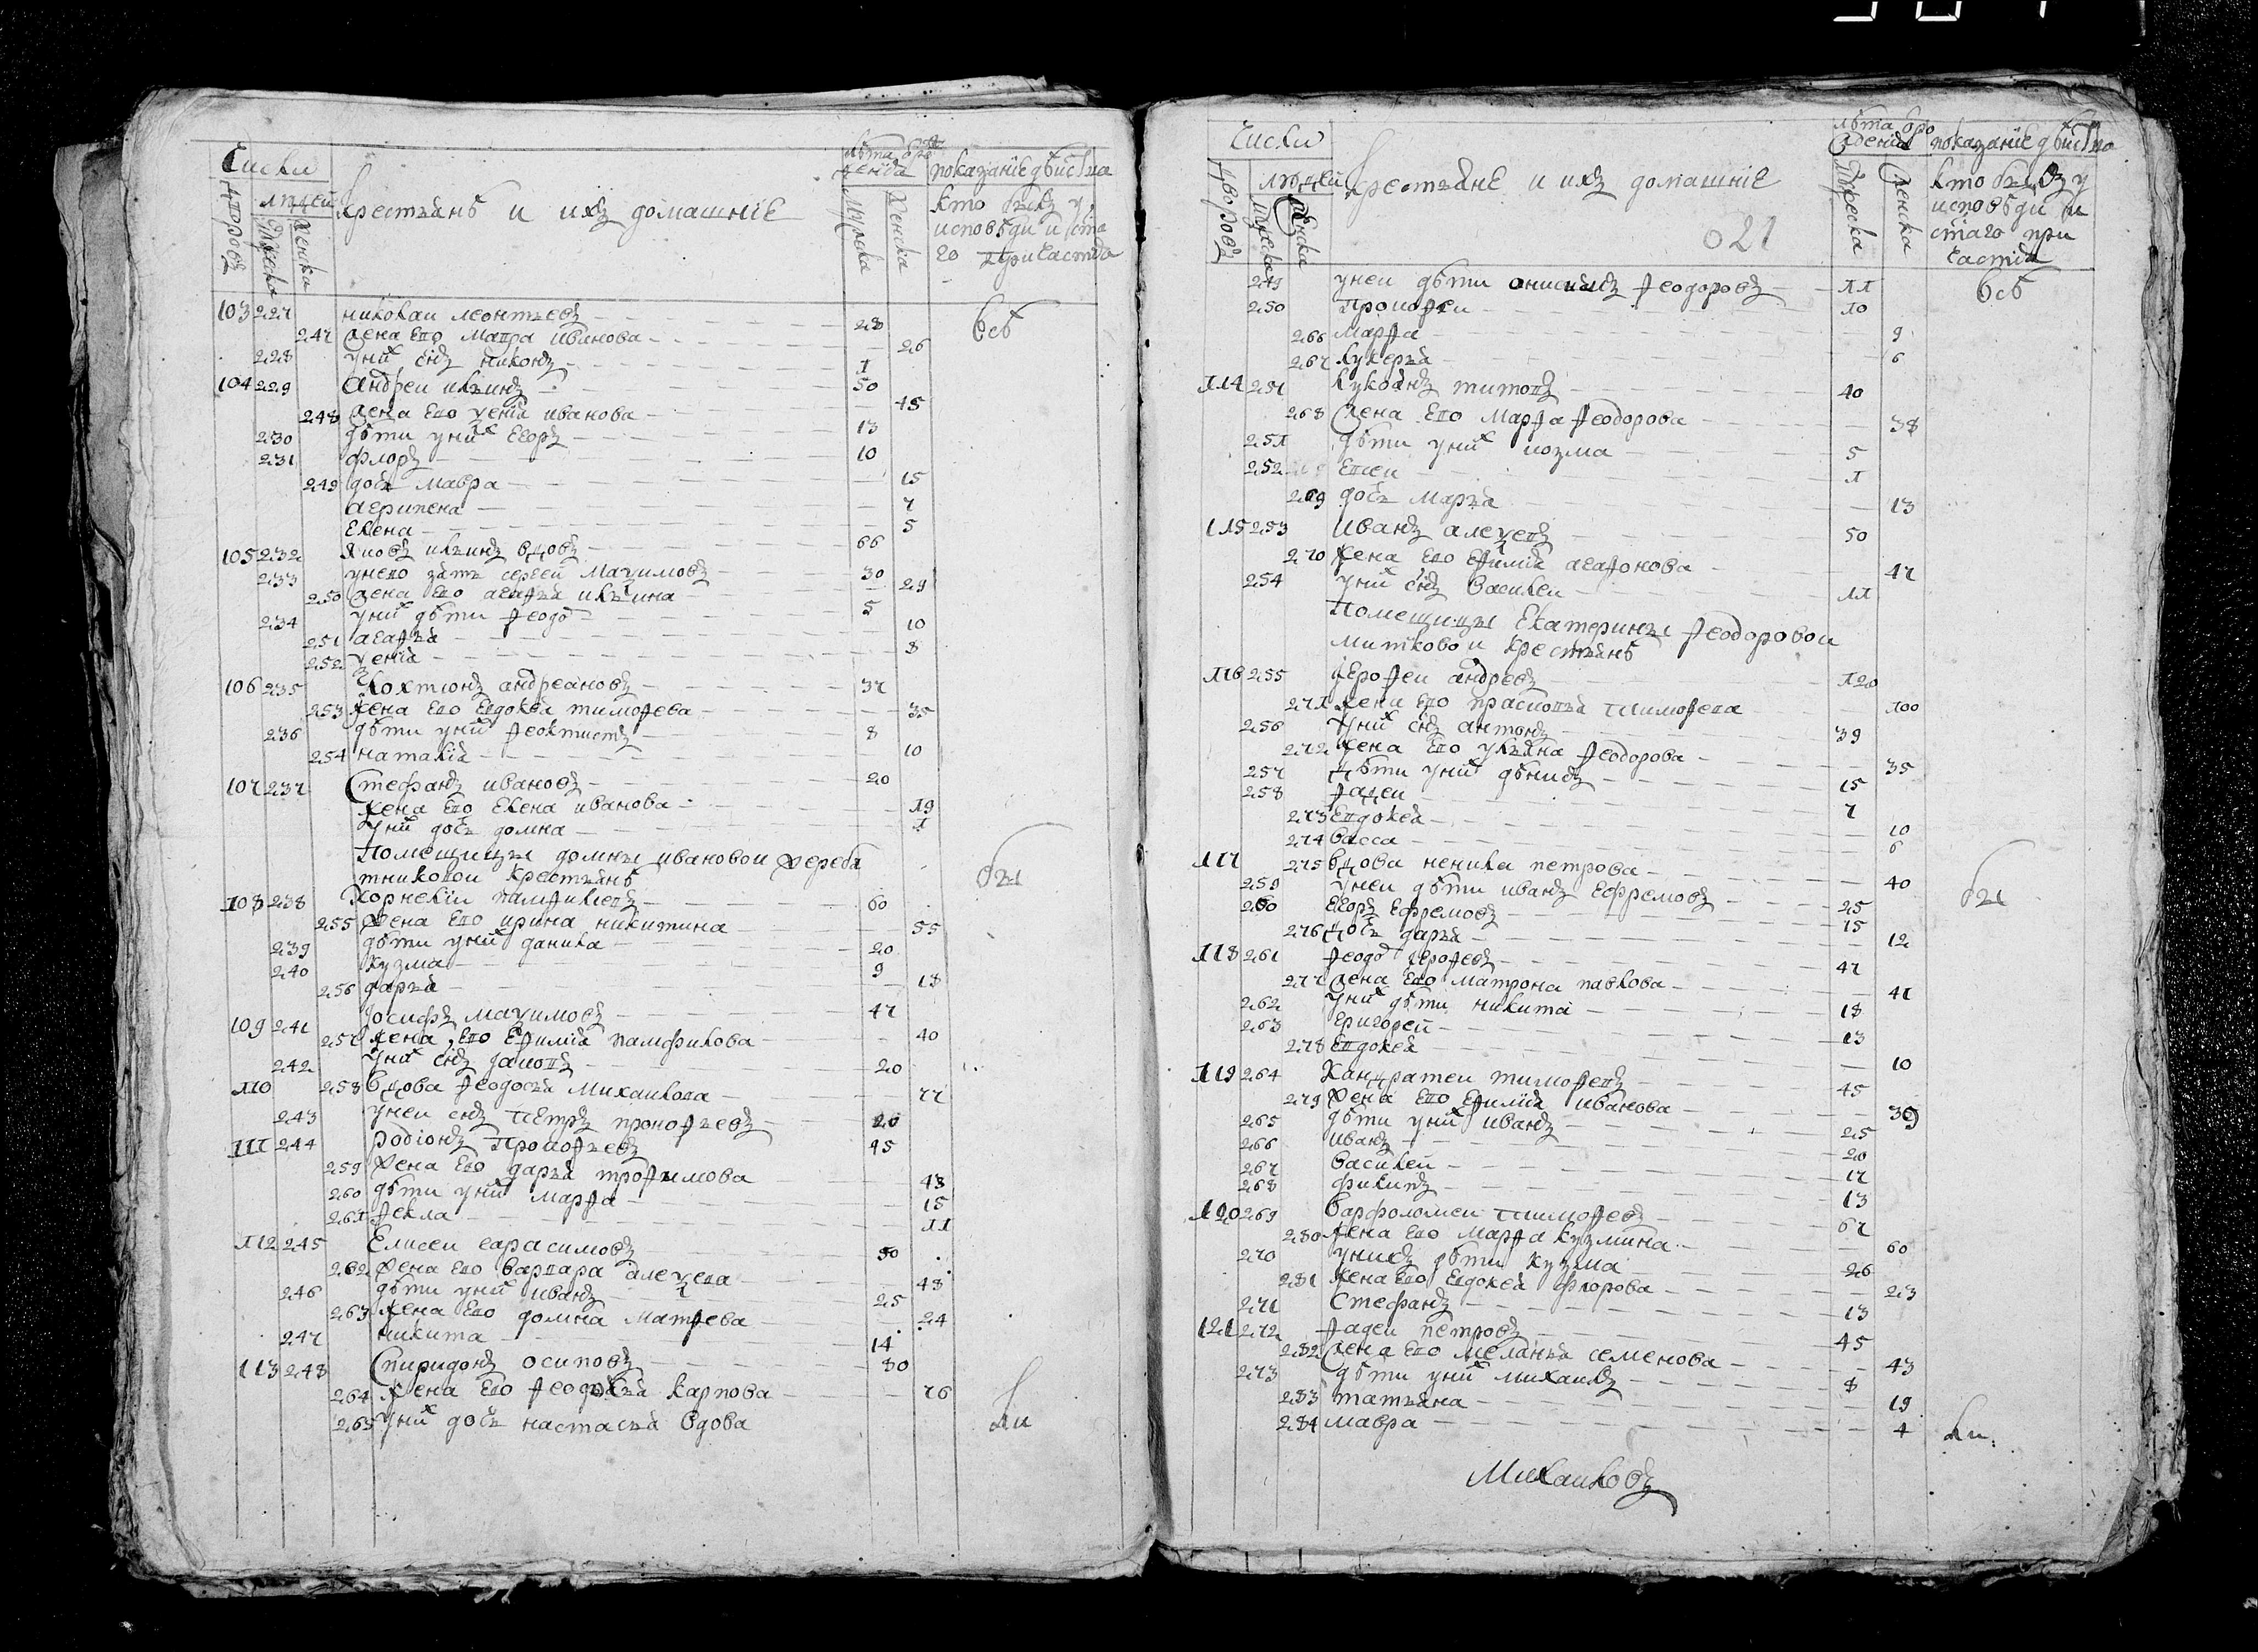 Числы
людей
дворовъ
мужеска
женска
крестьянѣ и ихъ домашнiе
лѣта рож
денiа
мужска
женска
показанiе дѣйства
кто былъ у
исповѣди и ста
го причастiа
103 227 николаи леонтьевъ 28
247 жена ево мавра иванова 26
228 у них сiнъ никонъ 1
104 229 андреи ильинъ 50
248 жена ево ѯенiа иванова 45
230 дѣти у них егоръ 13
231 флоръ 10
249 дочь мавра 15
агрипена 7
елена 5
105 232 яковъ ильинъ вдовъ 66
233 у нево зать сергеи маѯимовъ 30
250 жена ево агафьа ильина 29
234 у них дѣти Ѳеодо 5
251 агафьа 10
252 ѯенiа 8
106 235 локтионъ андреановъ 37
253 жена ево евдокеа тимоѳева 35
236 дѣти у них Ѳеоктистъ 8
254 наталiа 10
107 237 Стефанъ ивановъ 20
жена ево елена иванова 19
у них дочь домна 1
Помещицы домны ивановои жереба
тниковои крестьянѣ
108 238 корнелiи памфилевъ 60
255 жена ево ирина никитина 55
239 дѣти у них данила 20
240 кузма 9
256 дарьа 18
109 241 иосифъ маѯимовъ 47
257 жена ево еѳимiа памфилова 40
242 у них сiнъ иаковъ 20
110 258 вдова Ѳеодосьа михаилова 77
243 у неи сiнъ петръ прокофьевъ 20
111 244 родiонъ прокофьевъ 45
259 жена ево дарьа трофимова 48
260 дѣти у них марѳа 15
261 Ѳекла 11
112 245 Елисеи гарасимовъ 50
262 жена ево варвара алеѯева 48
246 дѣти у них иванъ 25
263 жена ево домна матѳева 24
247 никита 14
113 248 Спиридонъ осиповъ 80
264 жена ево Ѳеодосьа карпова 76
265 у них дочь настасьа вдова
всѣ
бы
ли
Числы
дворовъ
людей
мужеска
женска
крестьянѣ и ихъ домашнiе
021
лѣта рож
денiа
мужеска
женска
показанiе дѣйства
кто былъ у
исповѣди и
стаго при
частiа
249 у неи дѣти анисимъ Ѳеодоровъ 11
250 Прокофеи 10
266 марѳа 9
267 лукерьа 6
114 251 лукоанъ титовъ 40
268 жена ево марѳа Ѳеодорова 38
251 дѣти у них козма 5
252 евсеи 1
269 дочь марьа 13
115 253 иванъ алеѯевъ 50
270 жена ево еѳимiа агаѳонова 47
254 у них сiнъ василеи 11
Помещицы Екатерины Ѳеодоровои
митковои крестьянѣ
116 255 ероѳеи андревъ 120
271 жена ево прасковьа тимоѳева 100
256 у них сiнъ антонъ 39
272 жена ево ульана Ѳеодорова 35
257 дѣти у них дѣнисъ 15
258 Ѳадеи 7
273 евдокеа 10
274 васса 6
117 275 вдова ненила петрова 40
259 у неи дѣти иванъ ефремовъ 25
260 егоръ ефремовъ 15
276 дочь дарьа 12
118 261 Ѳеодо ероѳевъ 47
277 жена ево матрона павлова 41
262 у них дѣти никита 18
263 григореи 13
278 евдокеа 10
119 264 кандратеи тимоѳевъ 45
279 жена ево еѳимiа иванова 39
265 дѣти у них иванъ 25
266 иванъ 20
267 василеи 17
268 филипъ 13
120 269 варфоломеи тимоѳевъ 67
280 жена ево марѳа кузмина 60
270 у нихъ дѣти кузма 26
281 жена ево евдокеа флорова 23
271 стефанъ 13
121 272 Ѳадеи петровъ 45
282 жена ево меланьа семенова 43
273 дѣти у них михаилъ 8
283 татьана 19
284 мавра 4
всѣ
бы
ли
Михаиловъ